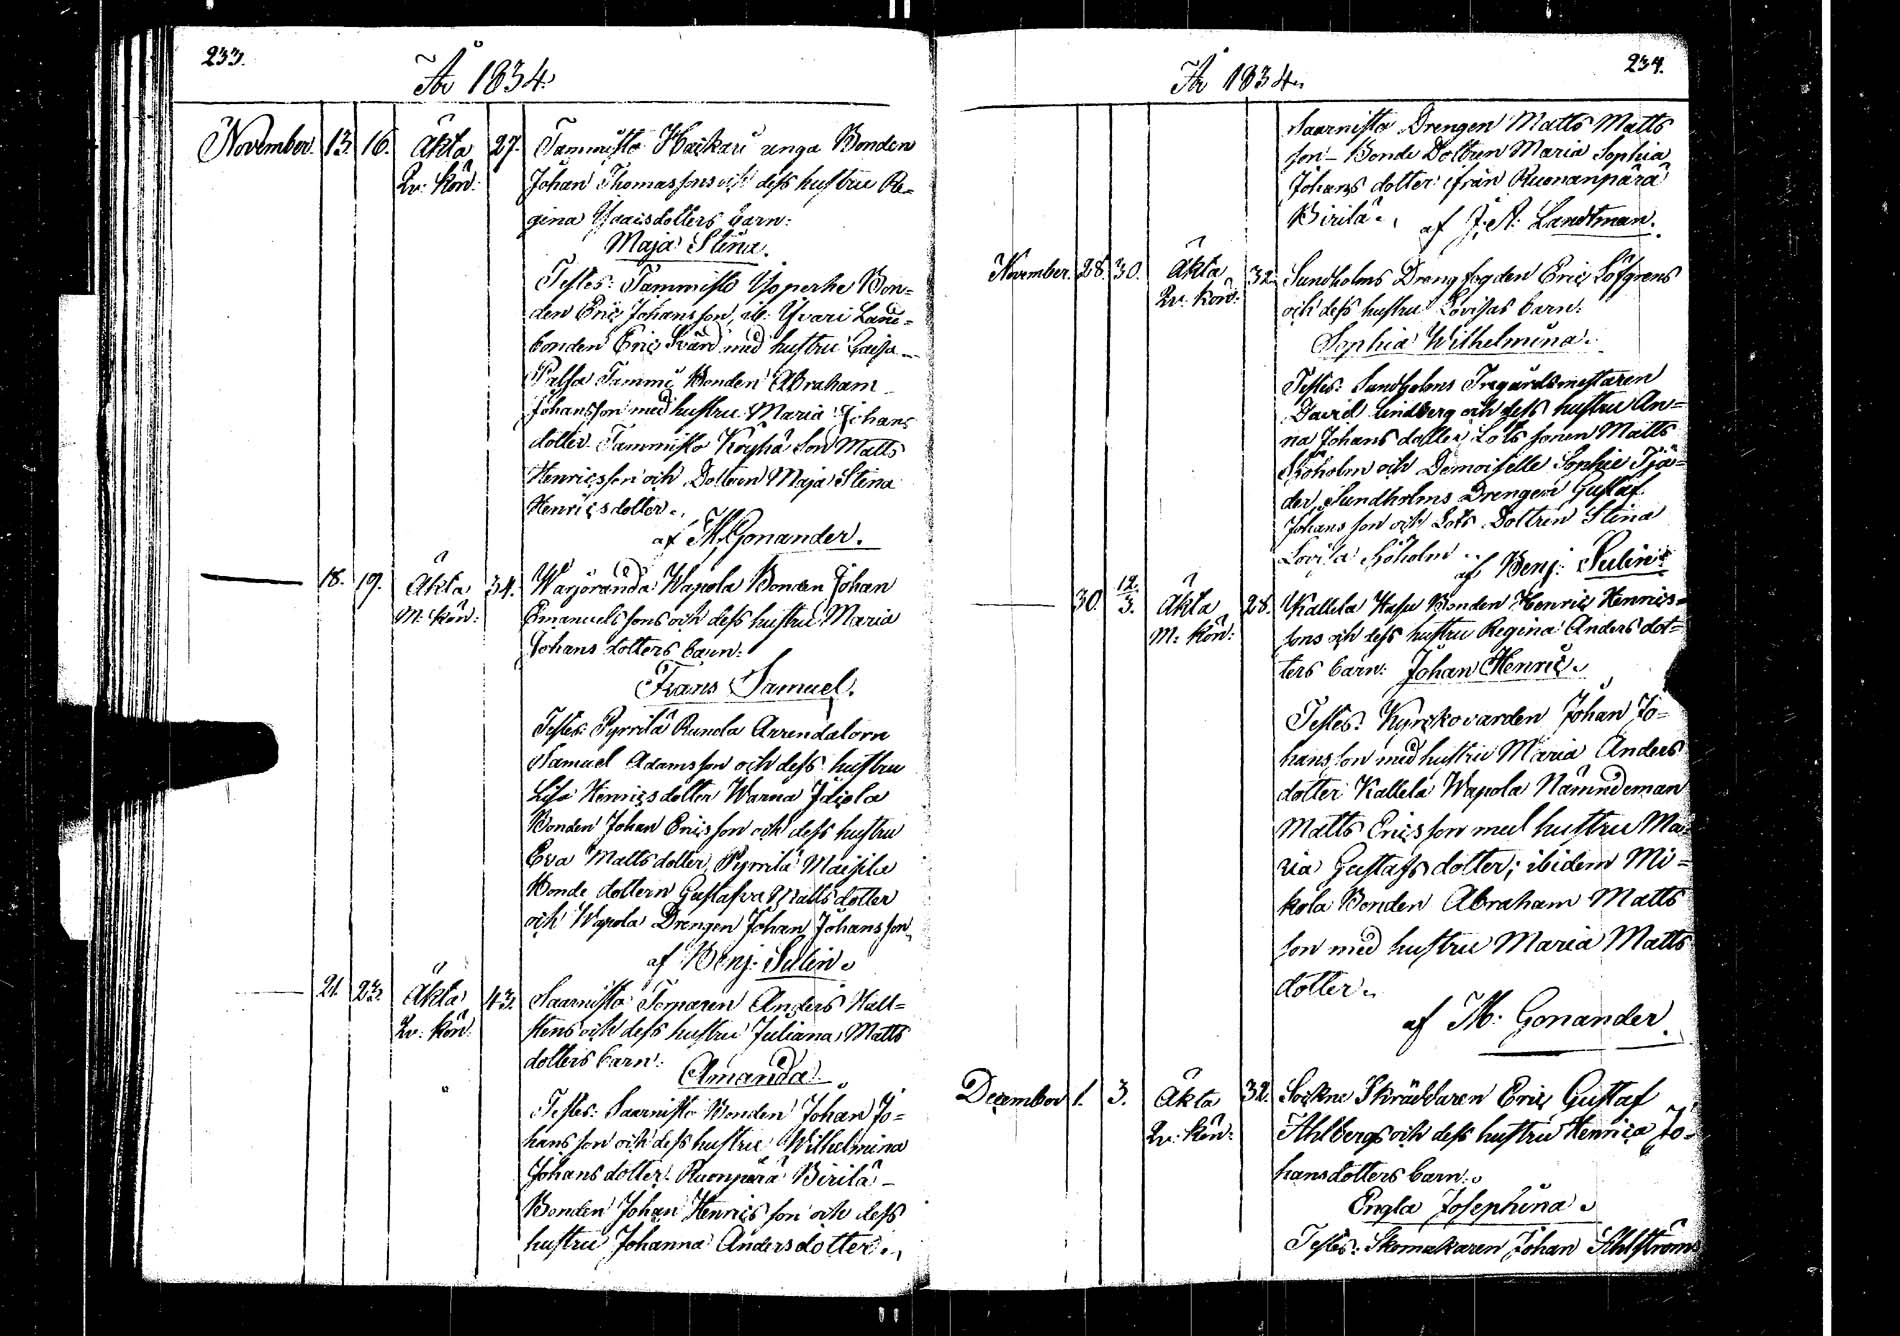 233.
År 1834.
November. 13. 16. Äkta 27. Tammisto Haikari unga Bonden
Qv: kön: Johan Thomassons och dess hustru Re=
gina Isaacsdotters barn:
Maja Stina.
Testes: Tammisto Yoperhe Bon=
den Eric Johansson, ib: Yvari Land=
bonden Eric Svärd med hustru Caisa
Palsa Tammi Bonden Abraham
Johansson med hustru Maria Johans
dotter Tammisto Köyhä Son Matts
Henricsson och Dottren Maja Stina
Henricsdotter.
af Th. Gonander.
18. 19. Äkta 34. Warjoranda Wapola Bonden Johan
M: kön: Emanuelssons och dess hustru Maria
Johansdotters barn:
Frans Samuel.
Testes: Pyrrilä Runola Arrendatorn
Samuel Adamsson och dess hustru
Lisa Henricsdotter Warna Jdiola
Bonden Johan Ericsson och dess hustru
Eva Mattsdotter, Pyrrilä Maisila
Bonde dottern Gustafva Mattsdotter
och Wapola Drengen Johan Johansson,
af Benj: Sulin.
21. 23. Äkta 43. Saarnisto Torparen Anders Hall=
Qv: kön: stens och dess hustru Juliana Matts
dotters barn:
Amanda
Testes: Saarnisto Bonden Johan Jo=
hansson och dess hustru Wilhelmina
Johansdotter. Ruonpärä Birilä
Bonden Johan Henricsson och dess
hustru Johanna Andersdotter.
234.
År 1834.
Saarnisto Drengen Matts Matts
son – Bonde Dottren Maria Sophia
Johans dotter ifrån Ruonanpärä
Birilä.
af J. A. Landtman.
November. 28. 30. Äkta 32. Sundholms Drengfogden Eric Löfgrens
Qv: kön: och dess hustru Lovisas barn:
Sophia Wilhelmina.
Testes: Sundholms Tregårdsmestaren
David Lindberg och dess hustru An=
na Johansdotter, Lots sonen Matts
Sjöholm och Demoiselle Sophie Tjä=
der, Sundholms Drengen Gustaf
Johansson och Lots Dottren Stina
Lovisa Sjöholm.
af Benj: Sulin.
30. 12/3. Äkta 28. Kallela Hasu Bonden Henric Henrics=
M: kön: sons och dess hustru Regina Anders dot=
ters barn: Johan Henric.
Testes: Kyrckovarden Johan Jo=
hansson med hustru Maria Anders
dotter Kallela Wapola Nämndeman
Matts Ericsson med hustru Ma=
ria Gustafsdotter; ibidem Mi=
kola Bonden Abraham Matts
son med hustru Maria Matts
dotter.
af Th: Gonander.
December 1. 3. Äkta 32. Sockne Skräddaren Eric Gustaf
Qv: kön: Ahlbergs och dess hustru Henrica Jo=
hansdotters barn.
Engla Josephina.
Testes: Skomakaren Johan Ahlströms